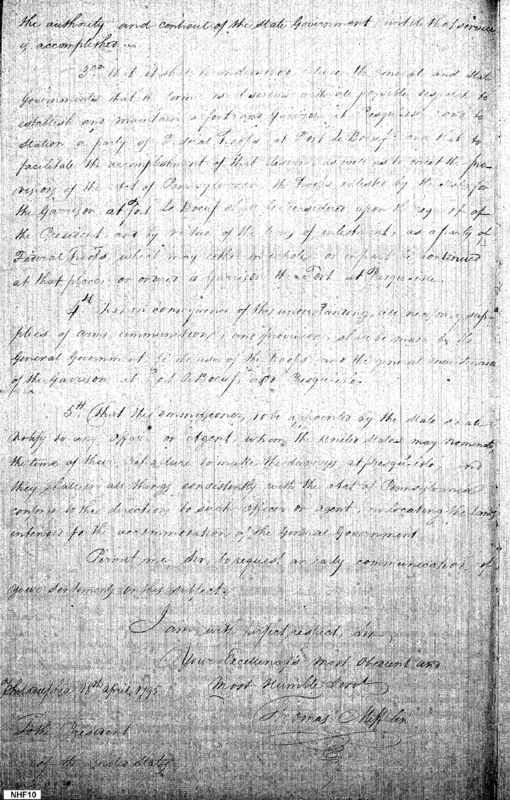 the authority and controul of the State Government until that service
is accomplished.
3rd That it shall be understood between the General and State
Governments that the former is desirous with all possible despatch to
establish and maintain a fort and Garrison at Presqu'isle and to
station a party of Federal Troops at Fort Le Boeuf and that to
facilitate the accomplishment of that design as well as to meet the pro-
visions of the Act of Pennsylvania the Troops enlisted by the State for
the Garrison at Fort Le Boeuf shall be considered upon the request of
the President and by virtue of the terms of enlistment, as a party of
Federal Troops, which may either in whole or in part be continued
at that place or ordered to Garrison the Fort at Presqu'isle.
4th That in consequence of this understanding, all necessary sup-
plies of arms, ammunition, and provision, shall be made by the
General Government, for the use of the Troops and the general maintenance
of the Garrison at Fort Le Boeuf, and Presqu'isle.
5th That the Commissioners to be appointed by the State shall
notify to any Officer or Agent whom the United States may nominate
the time of their departure to make the surveys at presqu'isle, and
they shall in all things consistently with the Act of Pennsylvania
conform to the direction of such officer or agent, in locating the lands
intended for the accommodation of the General Government
Permit me, Sir, to request an early communication of
your sentiments on this subject.
I am, with perfect respect, Sir
Your Excellency's most Obedient and
Most Humble Servt
Philadelphia 18th April 1795
Thomas Mifflin
To the President
of the United States
NHF10